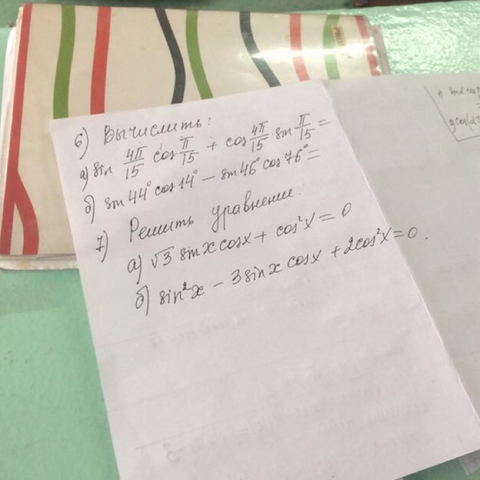 6) Вычислить:
а) sin 4π/15 cos π/15 + cos 4π/15 sin π/15 =
б) sin 44° cos 14° − sin 46° cos 76° =
7) Решить уравнени.
а) √3 sin x cos x + cos²x = 0
б) sin²x − 3 sin x cos x + 2cos²x = 0.